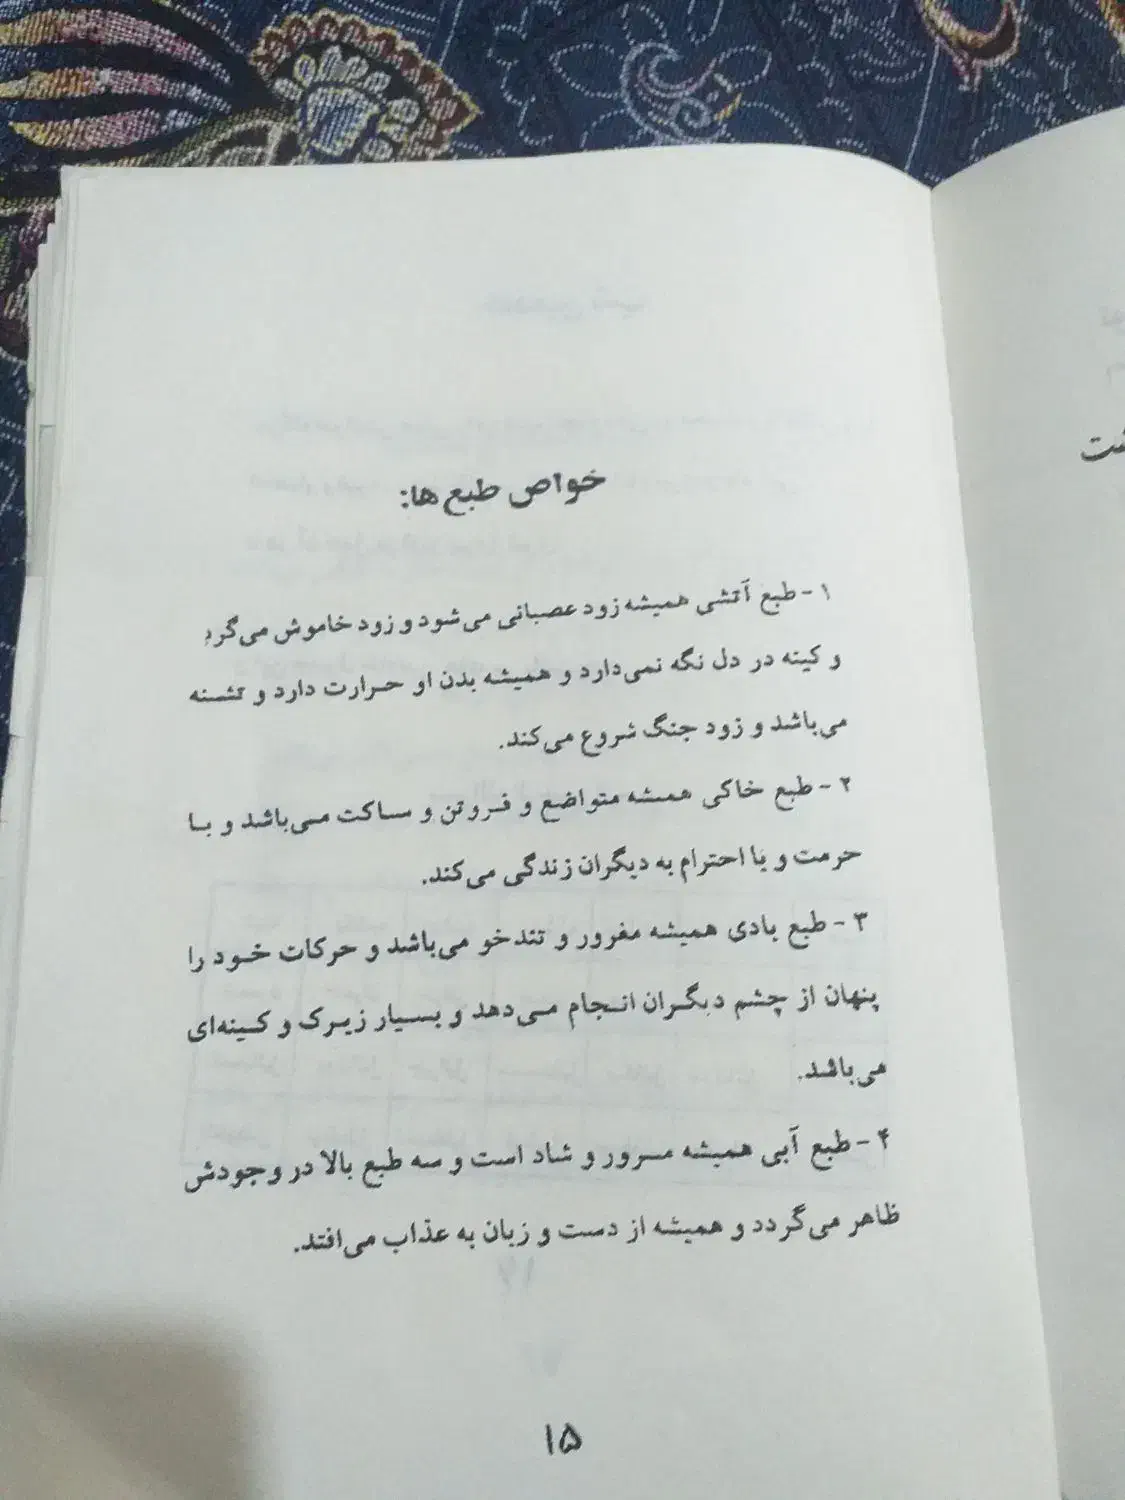 خواص طبع ها:
۱- طبع آتشی همیشه زود عصبانی می‌شود و زود خاموش می‌گردد
و کینه در دل نگه نمی‌دارد و همیشه بدن او حرارت دارد و تشنه
می‌باشد و زود جنگ شروع می‌کند.
۲- طبع خاکی همیشه متواضع و فروتن و ساکت می‌باشد و با
حرمت و با احترام به دیگران زندگی می‌کند.
۳- طبع بادی همیشه مغرور و تندخو می‌باشد و حرکات خود را
پنهان از چشم دیگران انجام می‌دهد و بسیار زیرک و کینه‌ای
می‌باشد.
۴- طبع آبی همیشه مسرور و شاد است و سه طبع بالا در وجودش
ظاهر می‌گردد و همیشه از دست و زبان به عذاب می‌افتد.
۱۵